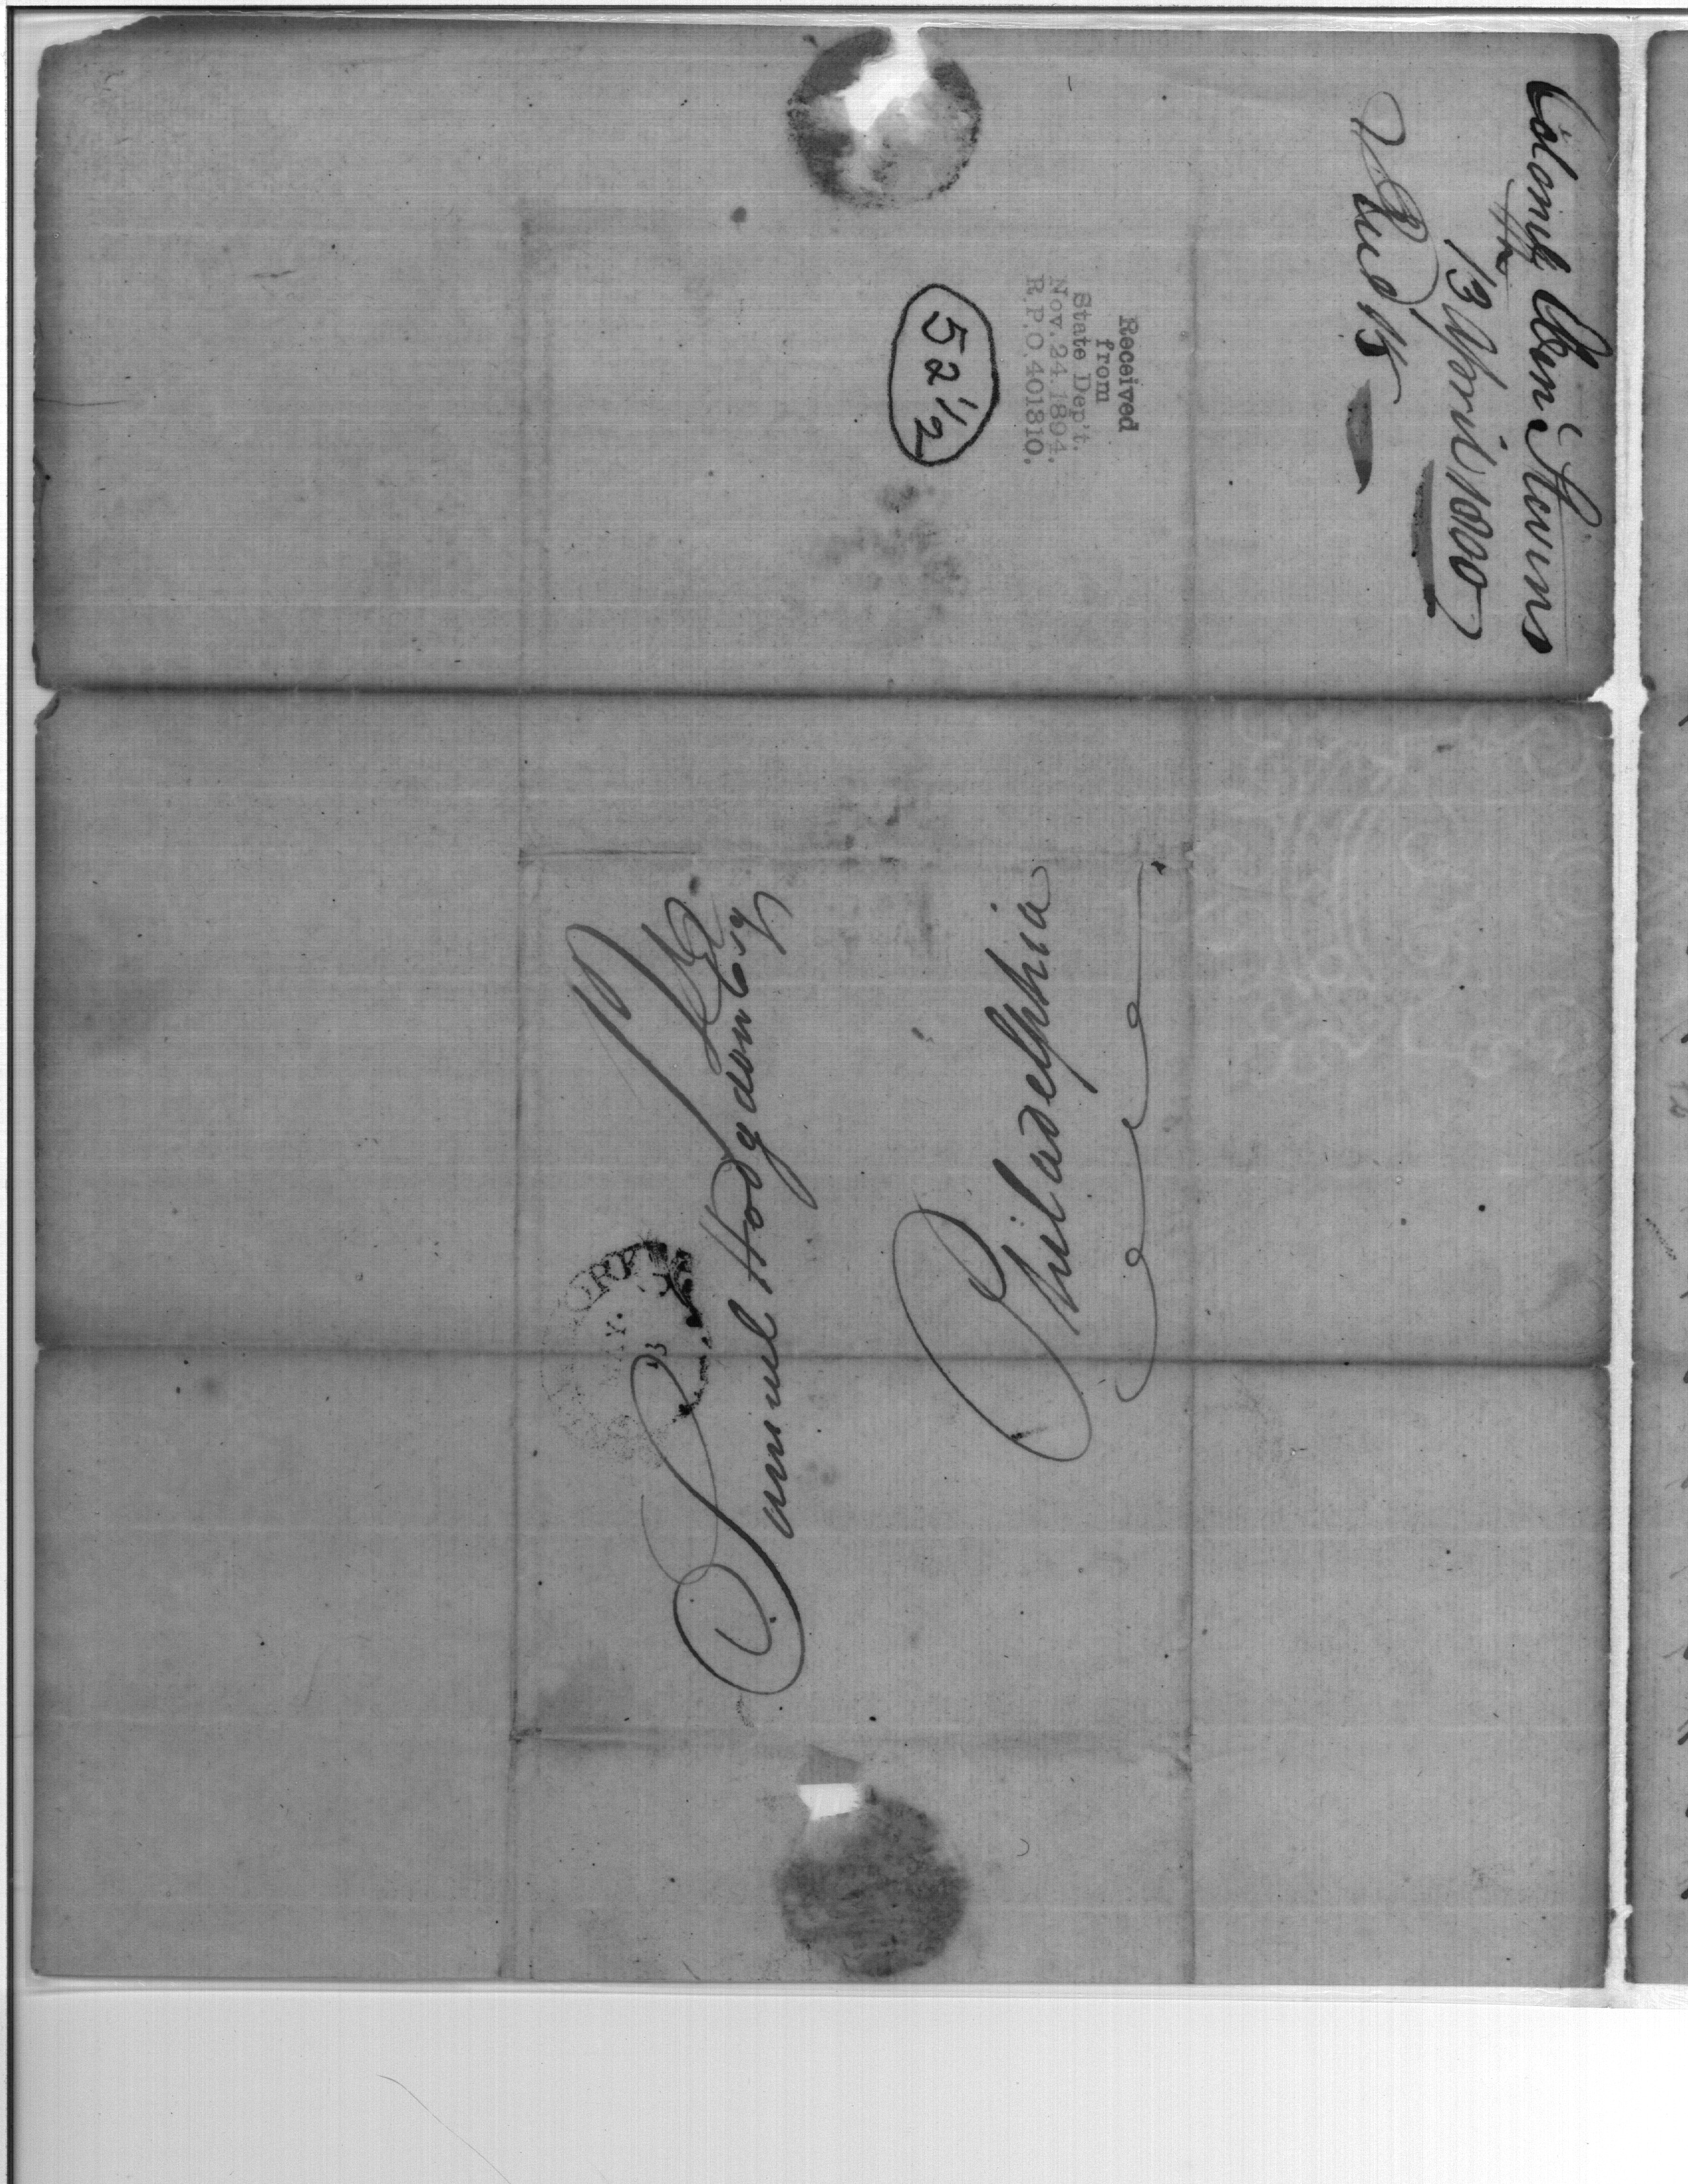 Colonel Eben Stevens
13th April 1800
Recd 15
Received
from
State Dep't.
Nov. 24. 1894.
R.P.O. 401810.
52 1/2
ORK
Y.
Samuel Hodgdon Esq
Philadelphia